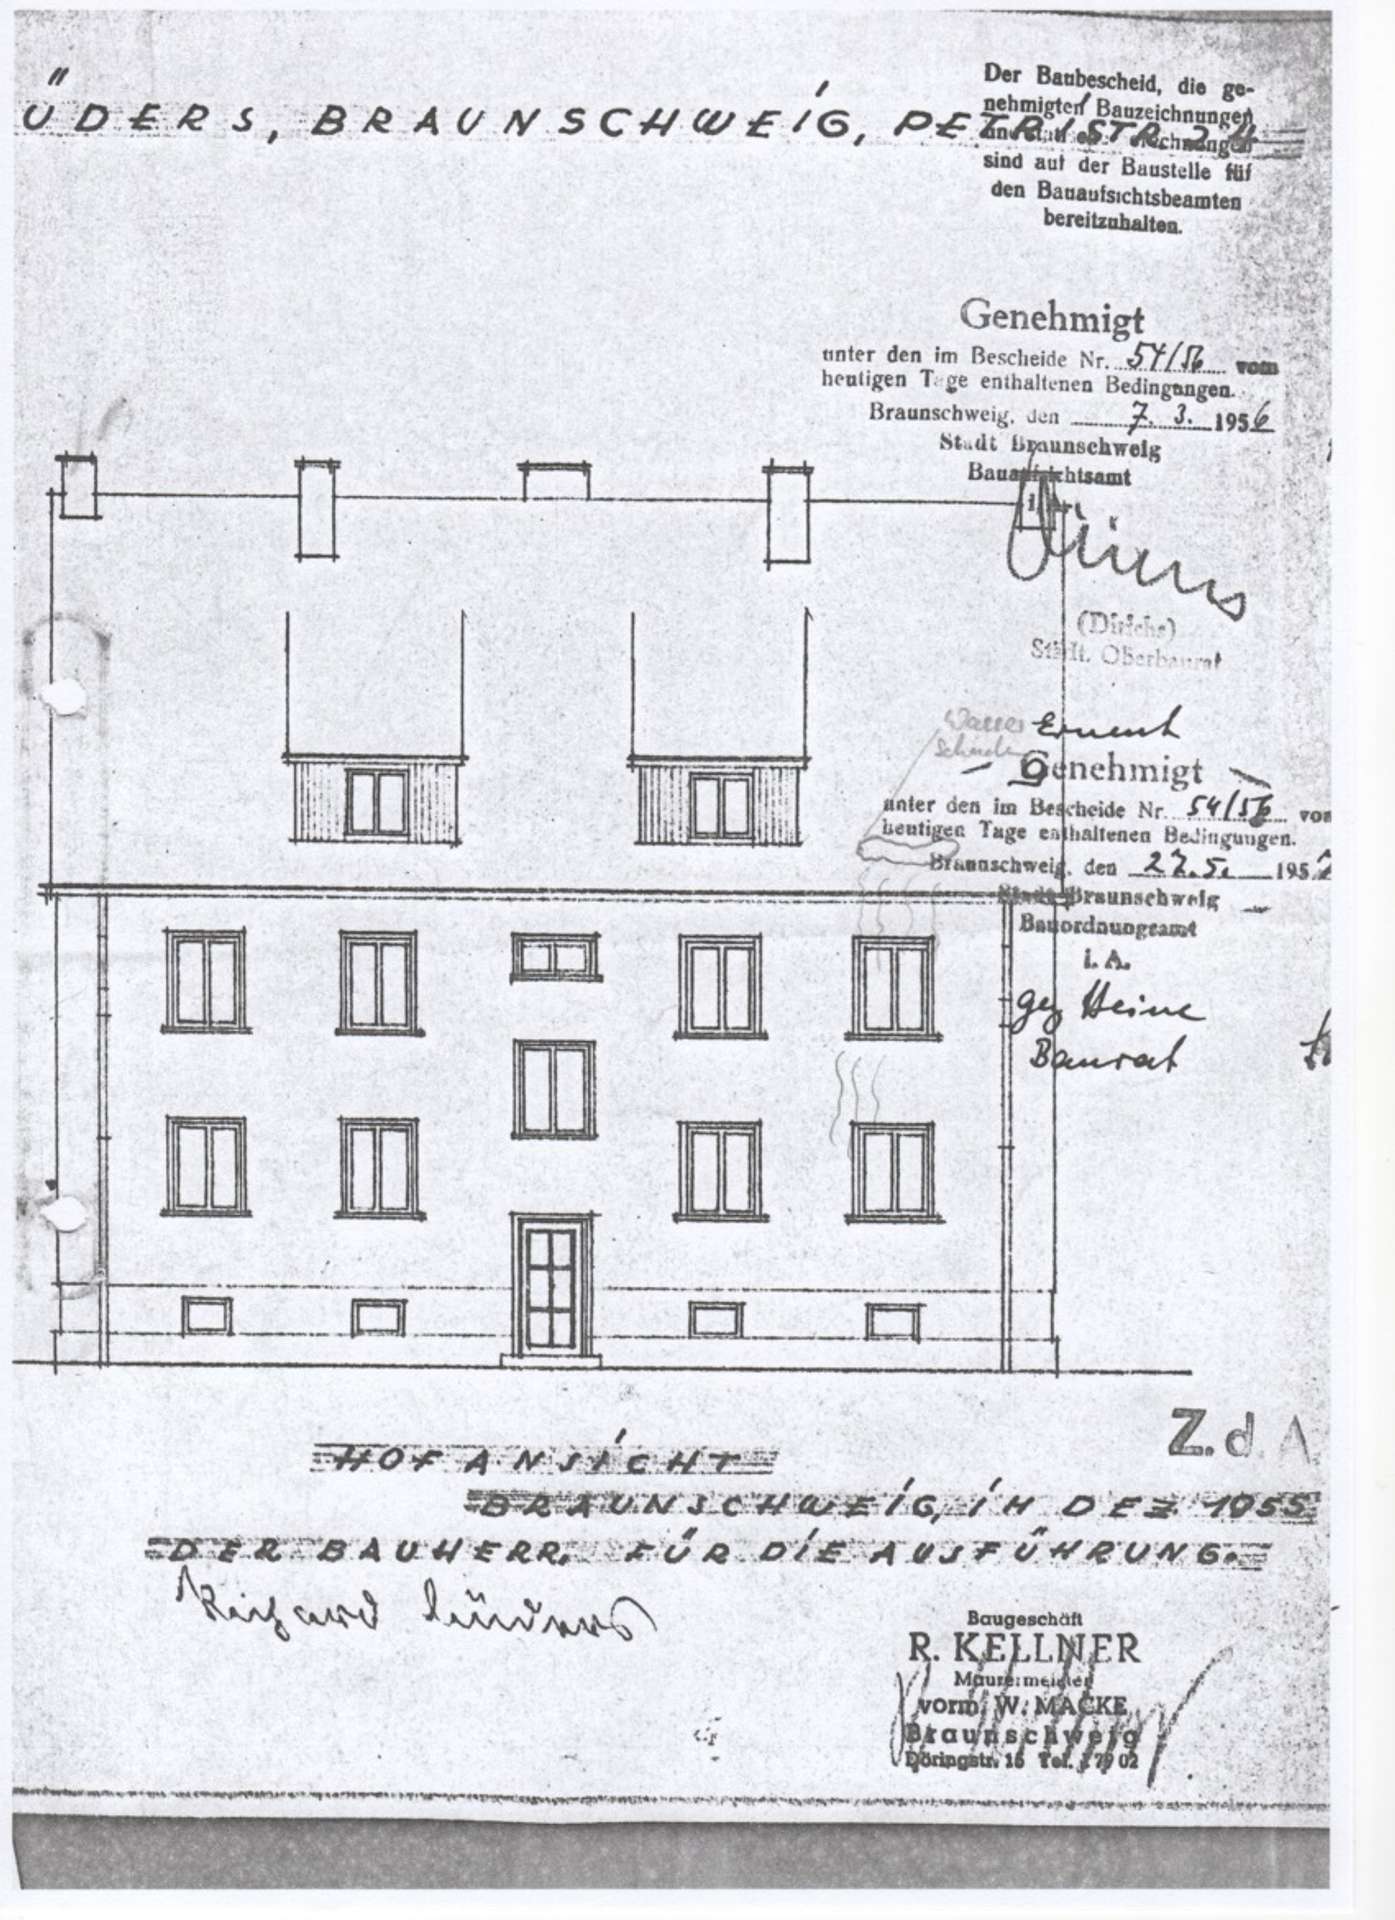 ÜDERS, BRAUNSCHWEIG, PETRISTR.
Der Baubescheid, die ge-
nehmigten Bauzeichnungen
sind auf der Baustelle für
den Bauaufsichtsbeamten
bereitzuhalten.
Genehmigt
unter den im Bescheide Nr. 54/56 vom
heutigen Tage enthaltenen Bedingungen.
Braunschweig, den 7. 3. 1956
Stadt Braunschweig
Bauaufsichtsamt
Städt. Oberbaurat
Erneut
Genehmigt
unter den im Bescheide Nr. 54/56 vom
heutigen Tage enthaltenen Bedingungen.
Braunschweig, den 22.5. 195
Stadt Braunschweig
Bauordnungsamt
i. A.
gez Heine
Baurat
Z. d. A
HOFANSICHT
BRAUNSCHWEIG, IM DEZ 1955
DER BAUHERR. FÜR DIE AUSFÜHRUNG.
Richard Lüders
Baugeschäft
R. KELLNER
Maurermeister
vorm. W. MACKE
Braunschweig
Döringstr. 16 Tel.